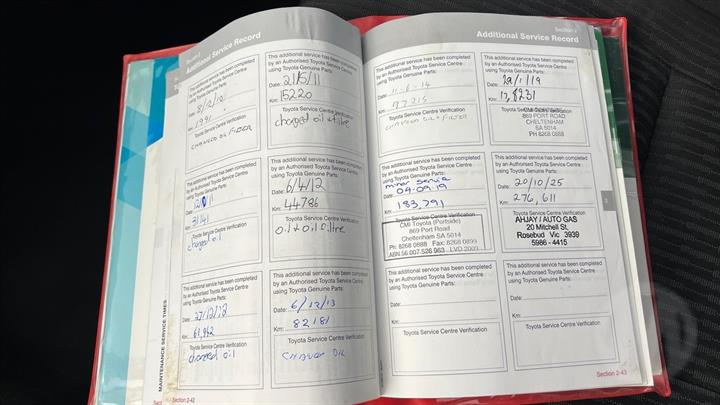 Section 2
Additional Service Record
This additional service has been completed
by an Authorised Toyota Service Centre
using Toyota Genuine Parts:
Date: 8/12/10
Km: 1991
Toyota Service Centre Verification
CHANGED OIL FILTER
This additional service has been completed
by an Authorised Toyota Service Centre
using Toyota Genuine Parts:
Date: 21/5/11
Km: 15220
Toyota Service Centre Verification
changed oil + filtre
This additional service has been completed
by an Authorised Toyota Service Centre
using Toyota Genuine Parts:
Date:
Km: 3141
Toyota Service Centre Verification
changed oil
This additional service has been completed
by an Authorised Toyota Service Centre
using Toyota Genuine Parts:
Date: 6/4/12
Km: 44786
Toyota Service Centre Verification
oil + oil filtre
This additional service has been completed
by an Authorised Toyota Service Centre
using Toyota Genuine Parts:
Date: 27/12/12
Km: 61,962
Toyota Service Centre Verification
changed oil
This additional service has been completed
by an Authorised Toyota Service Centre
using Toyota Genuine Parts:
Date: 6/12/13
Km: 82181
Toyota Service Centre Verification
CHANGED OIL
MAINTENANCE SERVICE TIMES
Section 2-42
Section 2
Additional Service Record
This additional service has been completed
by an Authorised Toyota Service Centre
using Toyota Genuine Parts:
Date: 11-6-14
Km:
Toyota Service Centre Verification
CHANGED OIL + FILTER
This additional service has been completed
by an Authorised Toyota Service Centre
using Toyota Genuine Parts:
Date: 22/1/19
Km: 17,8231
Toyota Service Centre Verification
869 PORT ROAD
CHELTENHAM
SA 5014
PH 8268 0888
This additional service has been completed
by an Authorised Toyota Service Centre
using Toyota Genuine Parts:
minor service
Date: 04.09.19
Km: 183,791
Toyota Service Centre Verification
CMI Toyota (Portside)
869 Port Road
Cheltenham SA 5014
Ph: 8268 0888 Fax: 8268 0899
ABN 56 007 526 963 LVD 2003
This additional service has been completed
by an Authorised Toyota Service Centre
using Toyota Genuine Parts:
Date: 20/10/25
Km: 276,611
Toyota Service Centre Verification
AHJAY / AUTO GAS
20 Mitchell St,
Rosebud Vic 3939
5986 - 4415
This additional service has been completed
by an Authorised Toyota Service Centre
using Toyota Genuine Parts:
Date:
Km:
Toyota Service Centre Verification
This additional service has been completed
by an Authorised Toyota Service Centre
using Toyota Genuine Parts:
Date:
Km:
Toyota Service Centre Verification
2
Section 2-43